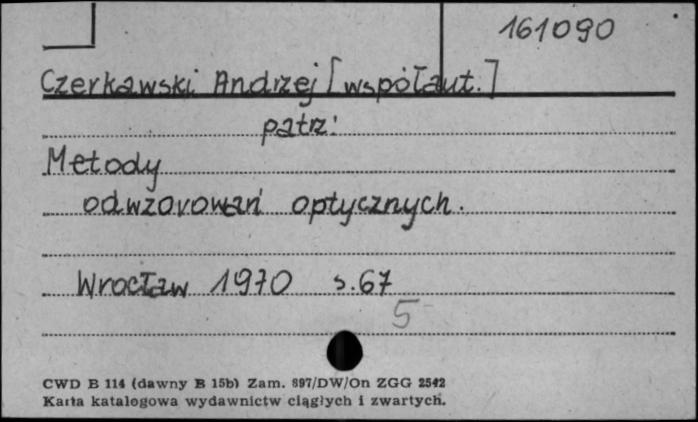 161090
Czerkawski Andrzej [współaut.]
patrz:
Metody
odwzorowań optycznych.
Wrocław 1970 s. 67
5
CWD B 114 (dawny B 15b) Zam. 897/DW/On ZGG 2542
Karta katalogowa wydawnictw ciągłych i zwartych.